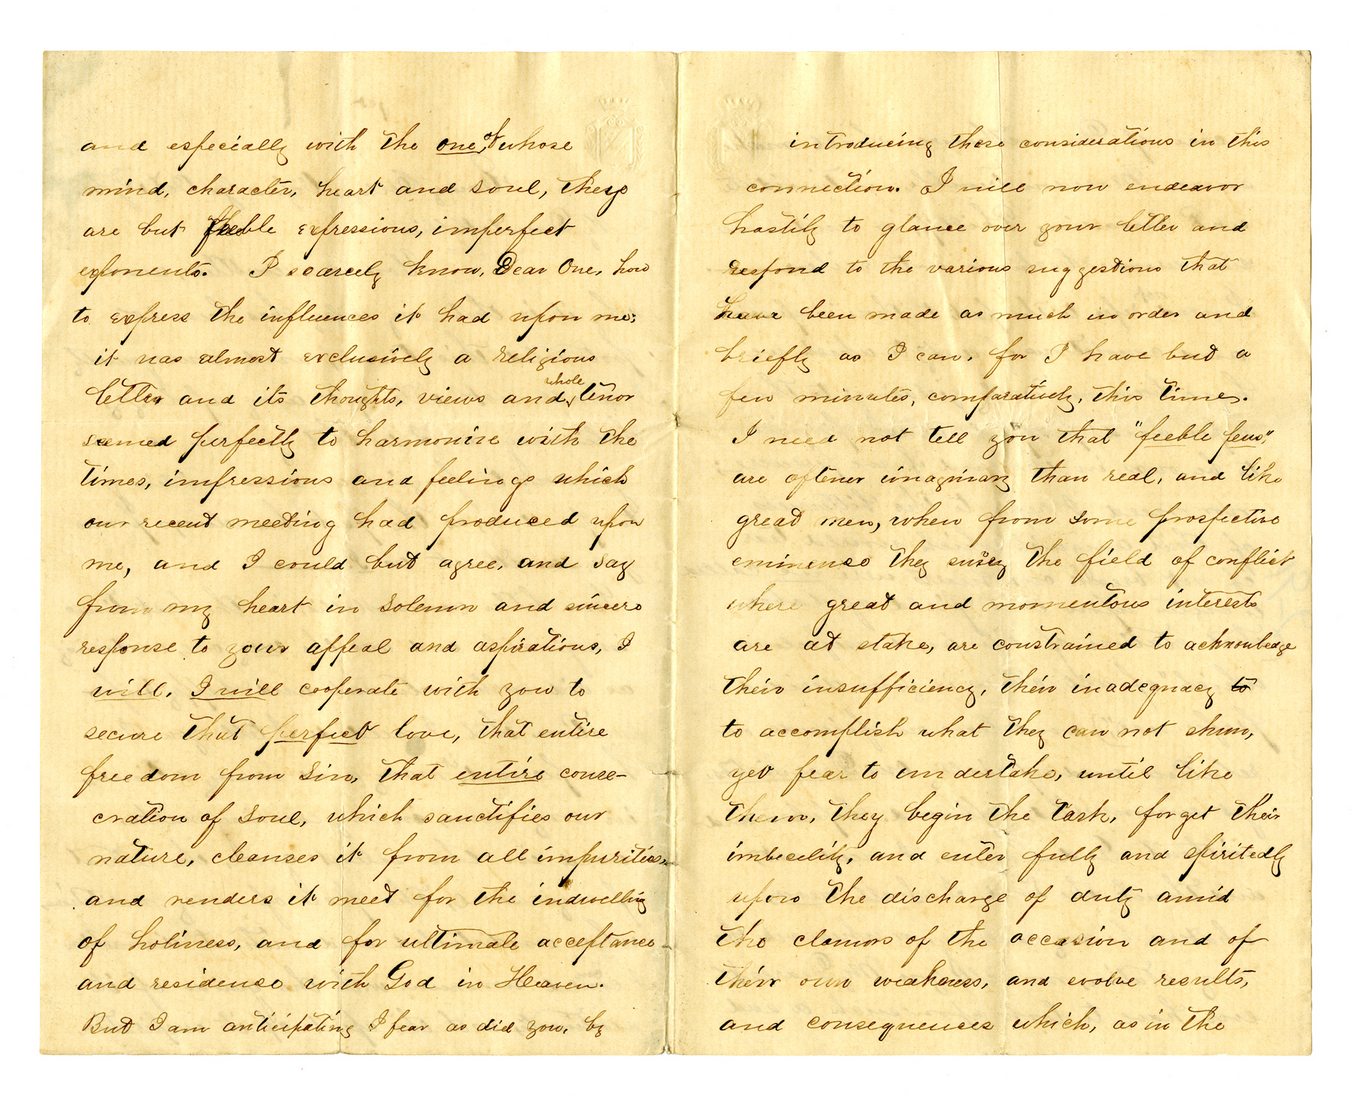 and especially with the one, of whose
mind, character, heart and soul, they
are but feeble expressions, imperfect
exponents. I scarcely know, Dear One, how
to express the influences it had upon me;
it was almost exclusively a religious
letter and its thoughts, views and whole tenor
seemed perfectly to harmonise with the
times, impressions and feelings which
our recent meeting had produced upon
me, and I could but agree, and say
from my heart in solemn and sincere
response to your appeal and aspirations, I
will, I will cooperate with you to
secure that perfect love, that entire
freedom from sin, that entire conse-
cration of soul, which sanctifies our
nature, cleanses it from all impurities
and renders it meet for the indwelling
of holiness, and for ultimate acceptance
and residence with God in Heaven.
But I am anticipating I fear as did you, by
introducing these considerations in this
connection. I will now endeavor
hastily to glance over your letter and
respond to the various suggestions that
have been made as much in order and
briefly as I can, for I have but a
few minutes, comparatively, this time.
I need not tell you that "feeble pens,"
are oftener imaginary than real, and like
great men, when from some prospective
eminence they survey the field of conflict
where great and momentous interests
are at stake, are constrained to acknowledge
their insufficiency, their inadequacy to
to accomplish what they can not shun,
yet fear to undertake, until like
them, they begin the task, forget their
imbecility, and enter fully and spiritedly
upon the discharge of duty amid
the clamors of the occasion and of
their own weakness, and evolve results,
and consequences which, as in the